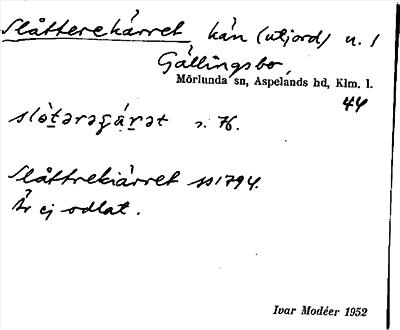 Slåtterekärret kän (utjord) u. 1
Gällingsbo,
Mörlunda sn, Aspelands hd, Klm. l.
44
slò̀tərəçá̤rət s. 76.
Slåttrekiärret 1794.
Är ej odlat.
Ivar Modéer 1952